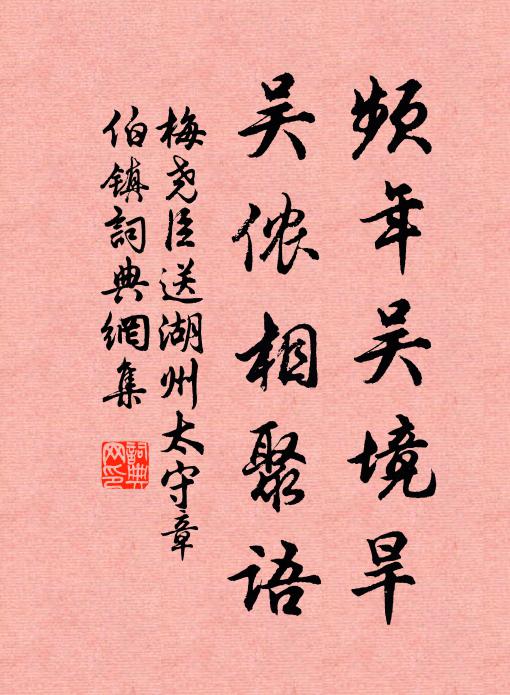 频年吴境旱
吴侬相聚语
梅尧臣送湖州太守章
伯镇詞典網集
詞典
网印